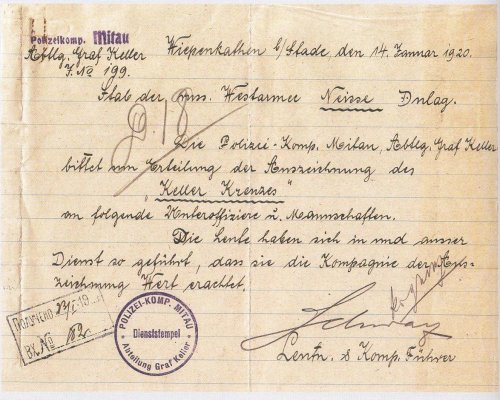 Polizeikomp. Mitau
Abtlg. Graf Keller
J. No 199.
Wiepenkathen b/Stade, den 14. Januar 1920.
Stab der russ. Westarmee Neisse Dulag.
Die Polizei-Komp. Mitau, Abtlg. Graf Keller
bittet um Erteilung der Auszeichnung des
"Keller Kreuzes"
an folgende Unteroffiziere u. Mannschaften.
Die Leute haben sich in und ausser
Dienst so geführt, dass sie die Kompagnie der Aus-
zeichnung Wert erachtet.
Leutn. & Komp. Führer
POLIZEI-KOMP. MITAU
Dienststempel
Abteilung Graf Keller
ВХ. №